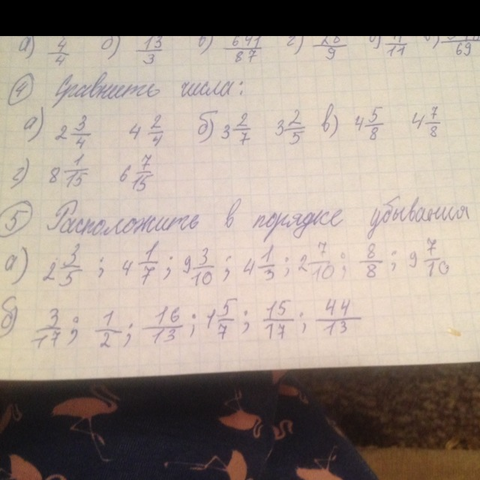 а) 4/4 б) 13/3 в) 641/87 г) 28/9 д) 11/11
④ Сравнить числа:
а) 2 3/4 4 2/4 б) 3 2/7 3 2/5 в) 4 5/8 4 7/8
г) 8 1/15 6 7/15
⑤ Расположить в порядке убывания
а) 2 3/5; 4 1/7; 9 3/10; 4 1/5; 2 7/10; 8/8; 9 7/10
б) 3/17; 1/2; 16/13; 1 5/7; 15/17; 44/13